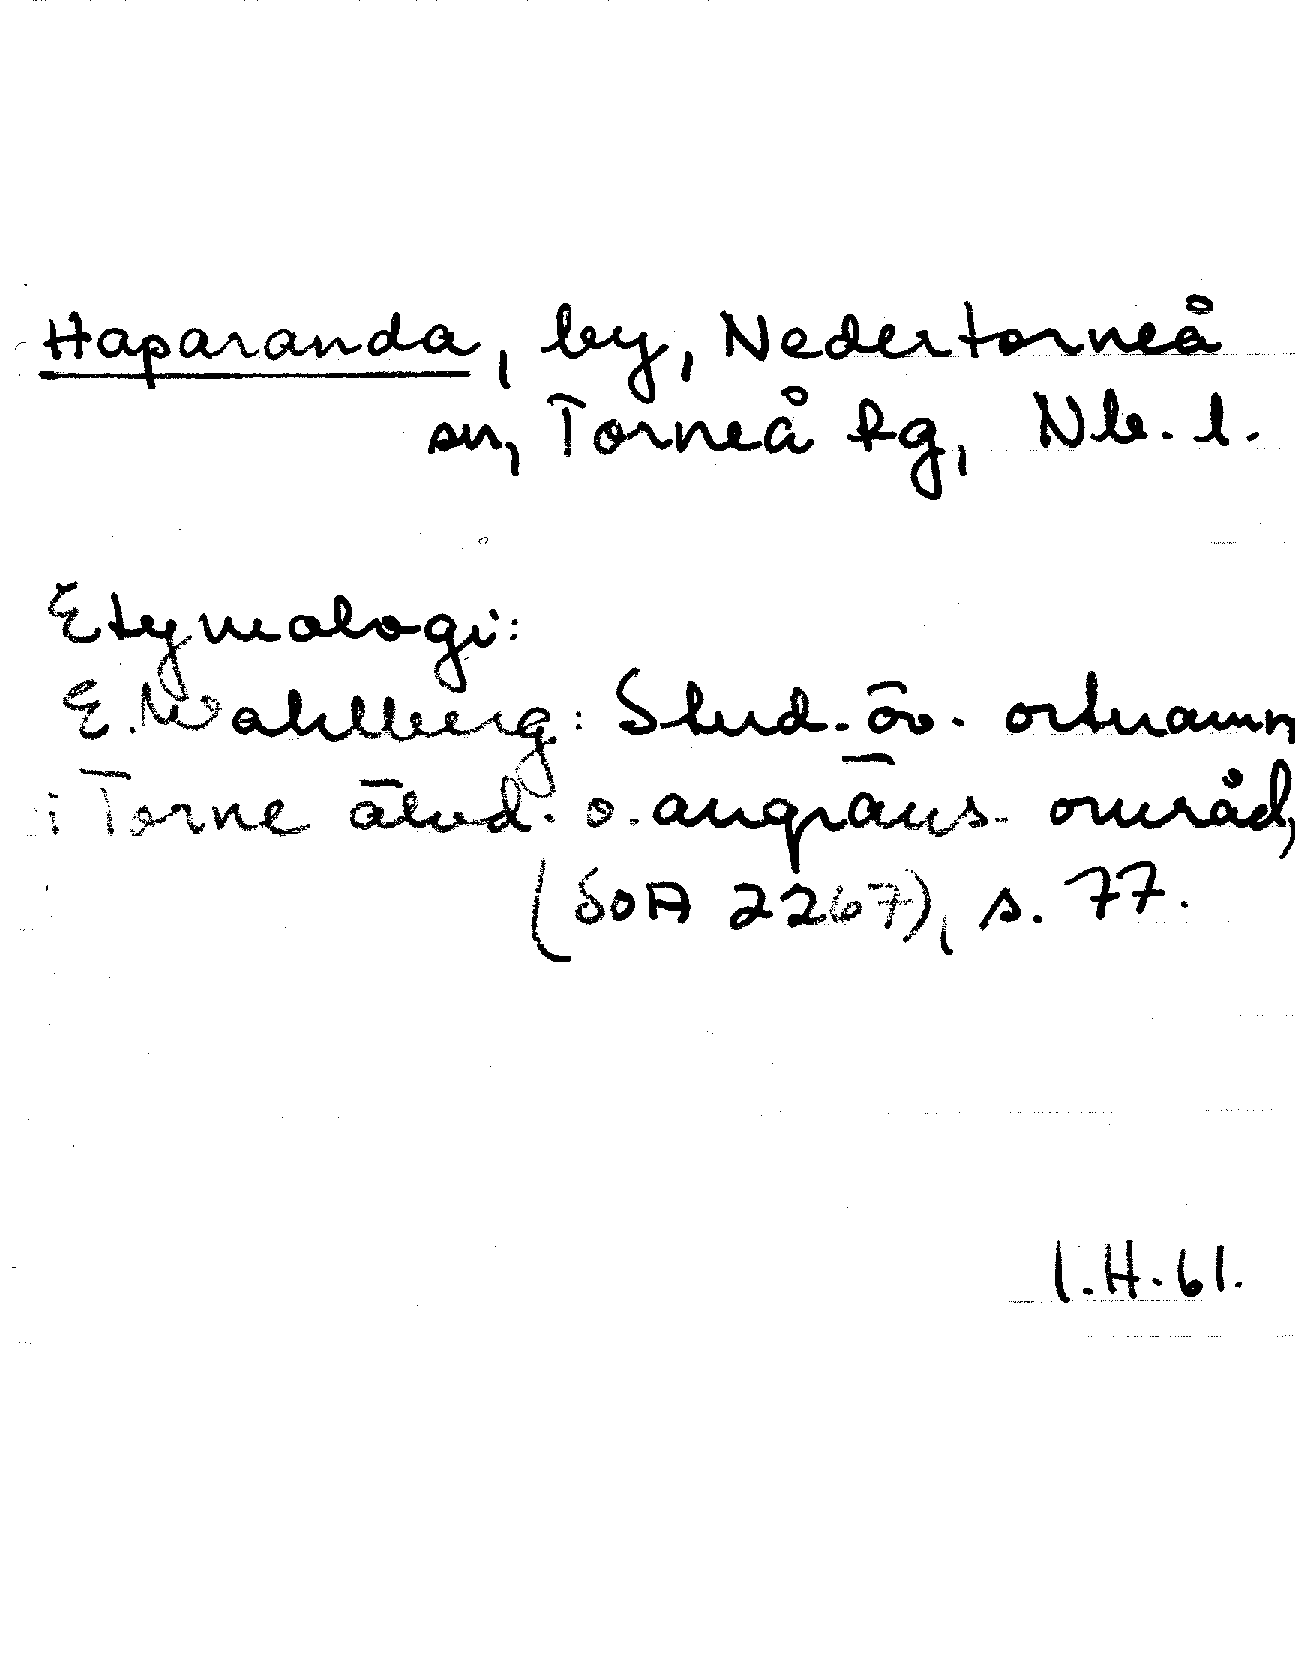 Haparanda, by, Nedertorneå
sn, Torneå tg, Nb. l.
Etymologi:
E. Wahlberg: Stud. öv. ortnamn
i Torne älvd. o. angräns. områd,
(SOA 2267), s. 77.
I.H.61.